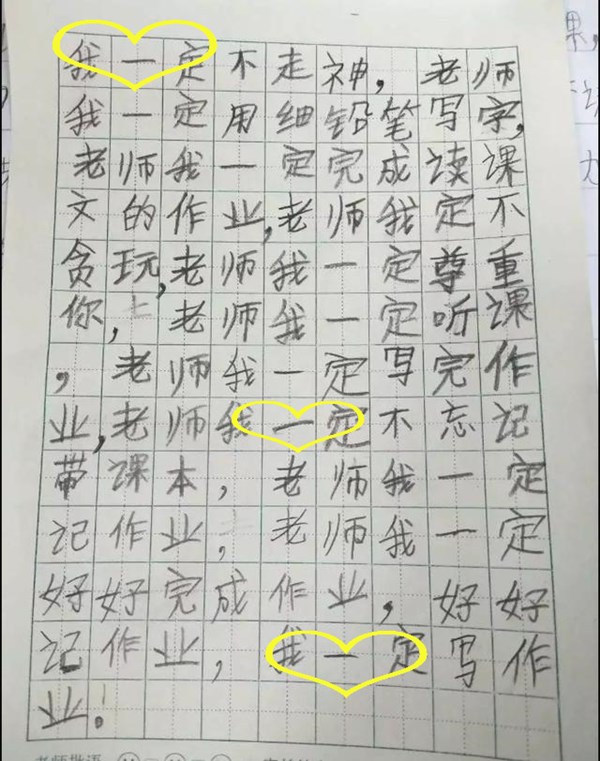 我一定不走神,老师
我一定用细铅笔写字,
老师我一定完成读课
文的作业,老师我定不
贪玩,老师我一定尊重
你,老师我一定听课
,老师我一定写完作
业,老师我一定不忘记
带课本,老师我一定
记作业,老师我一定
好好完成作业,好好
记作业,我一定写作
业!
老师批语